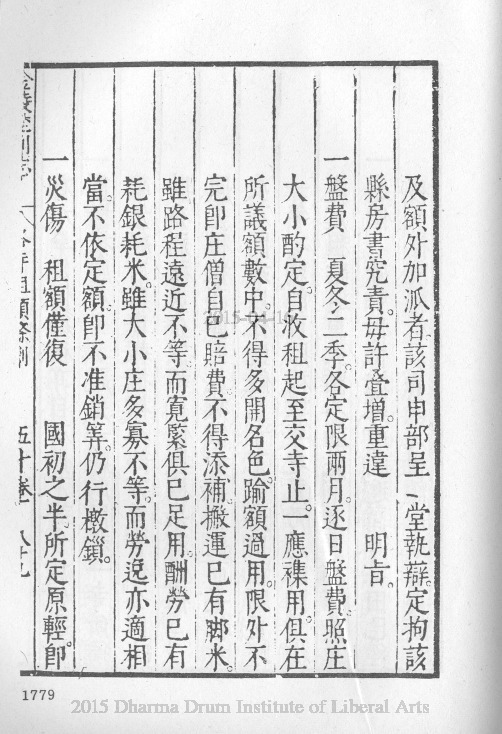 及額外加派者該司申部呈 堂執辯定拘該
縣房書究責。毋許叠增重違 明旨。
一盤費 夏冬二季。各定限兩月。逐日盤費。照庄
大小酌定。自收租起至交寺止。一應襍用。俱在
所議額數中。不得多開名色。踰額過用。限外不
完。即庄僧自已賠費。不得添補。搬運已有脚米。
雖路程遠近不等。而寬緊俱已足用。酬勞已有
耗銀耗米。雖大小庄多寡不等。而勞逸亦適相
當。不依定額。即不准銷筭。仍行檄鎖。
一災傷 租額僅復 國初之半。所定原輕。即
五十卷
1779
2015-04-16
2015 Dharma Drum Institute of Liberal Arts